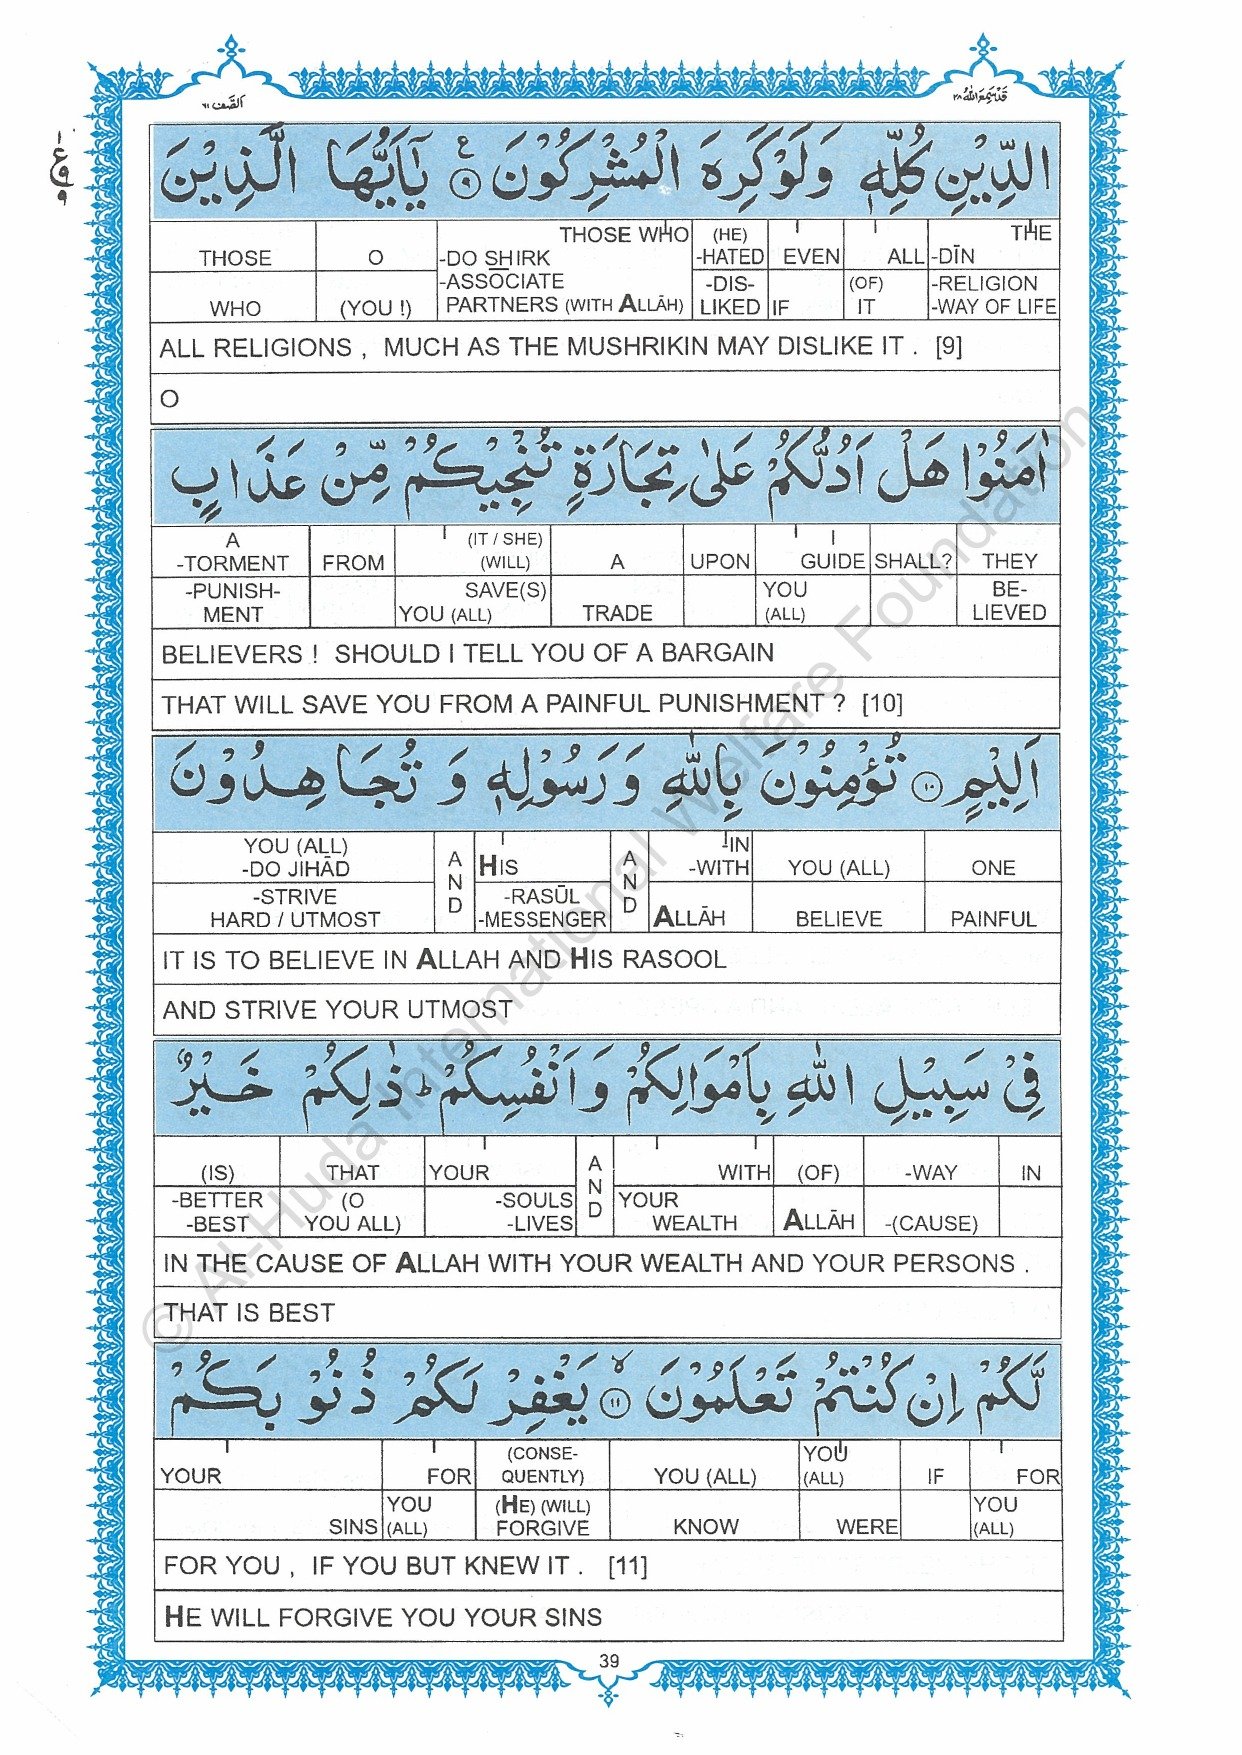 قَدْ سَمِعَ اللهُ ٢٨
اَلصَّف ٦١
الدِّيْنِ كُلِّهٖ وَلَوْ كَرِهَ الْمُشْرِكُوْنَ ۹ ع يٰٓاَيُّهَا الَّذِيْنَ
THOSE O THOSE WHO (HE) EVEN ALL THE
-DO SHIRK -HATED -DĪN
-ASSOCIATE -DIS- (OF) -RELIGION
WHO (YOU !) PARTNERS (WITH ALLĀH) LIKED IF IT -WAY OF LIFE
ALL RELIGIONS , MUCH AS THE MUSHRIKIN MAY DISLIKE IT . [9]
O
اٰمَنُوْا هَلْ اَدُلُّكُمْ عَلٰى تِجَارَةٍ تُنْجِيْكُمْ مِّنْ عَذَابٍ
A (IT / SHE) I
-TORMENT FROM (WILL) A UPON GUIDE SHALL? THEY
-PUNISH- SAVE(S) YOU BE-
MENT YOU (ALL) TRADE (ALL) LIEVED
BELIEVERS ! SHOULD I TELL YOU OF A BARGAIN
THAT WILL SAVE YOU FROM A PAINFUL PUNISHMENT ? [10]
اَلِيْمٍ ۱۰ تُؤْمِنُوْنَ بِاللّٰهِ وَرَسُوْلِهٖ وَ تُجَاهِدُوْنَ
YOU (ALL) AND AND -IN
-DO JIHĀD HIS -WITH YOU (ALL) ONE
-STRIVE -RASŪL
HARD / UTMOST -MESSENGER ALLĀH BELIEVE PAINFUL
IT IS TO BELIEVE IN ALLAH AND HIS RASOOL
AND STRIVE YOUR UTMOST
فِيْ سَبِيْلِ اللّٰهِ بِاَمْوَالِكُمْ وَاَنْفُسِكُمْ ط ذٰلِكُمْ خَيْرٌ
(IS) THAT YOUR AND WITH (OF) -WAY IN
-BETTER (O -SOULS YOUR
-BEST YOU ALL) -LIVES WEALTH ALLĀH -(CAUSE)
IN THE CAUSE OF ALLAH WITH YOUR WEALTH AND YOUR PERSONS .
THAT IS BEST
لَّكُمْ اِنْ كُنْتُمْ تَعْلَمُوْنَ ۱۱ لا يَغْفِرْ لَكُمْ ذُنُوْبَكُمْ
(CONSE- YOU
YOUR FOR QUENTLY) YOU (ALL) (ALL) IF FOR
YOU (HE) (WILL) YOU
SINS (ALL) FORGIVE KNOW WERE (ALL)
FOR YOU , IF YOU BUT KNEW IT . [11]
HE WILL FORGIVE YOU YOUR SINS
39
© Al-Huda International Welfare Foundation